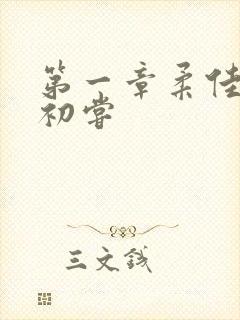 第一章柔佳
初尝
三文钱